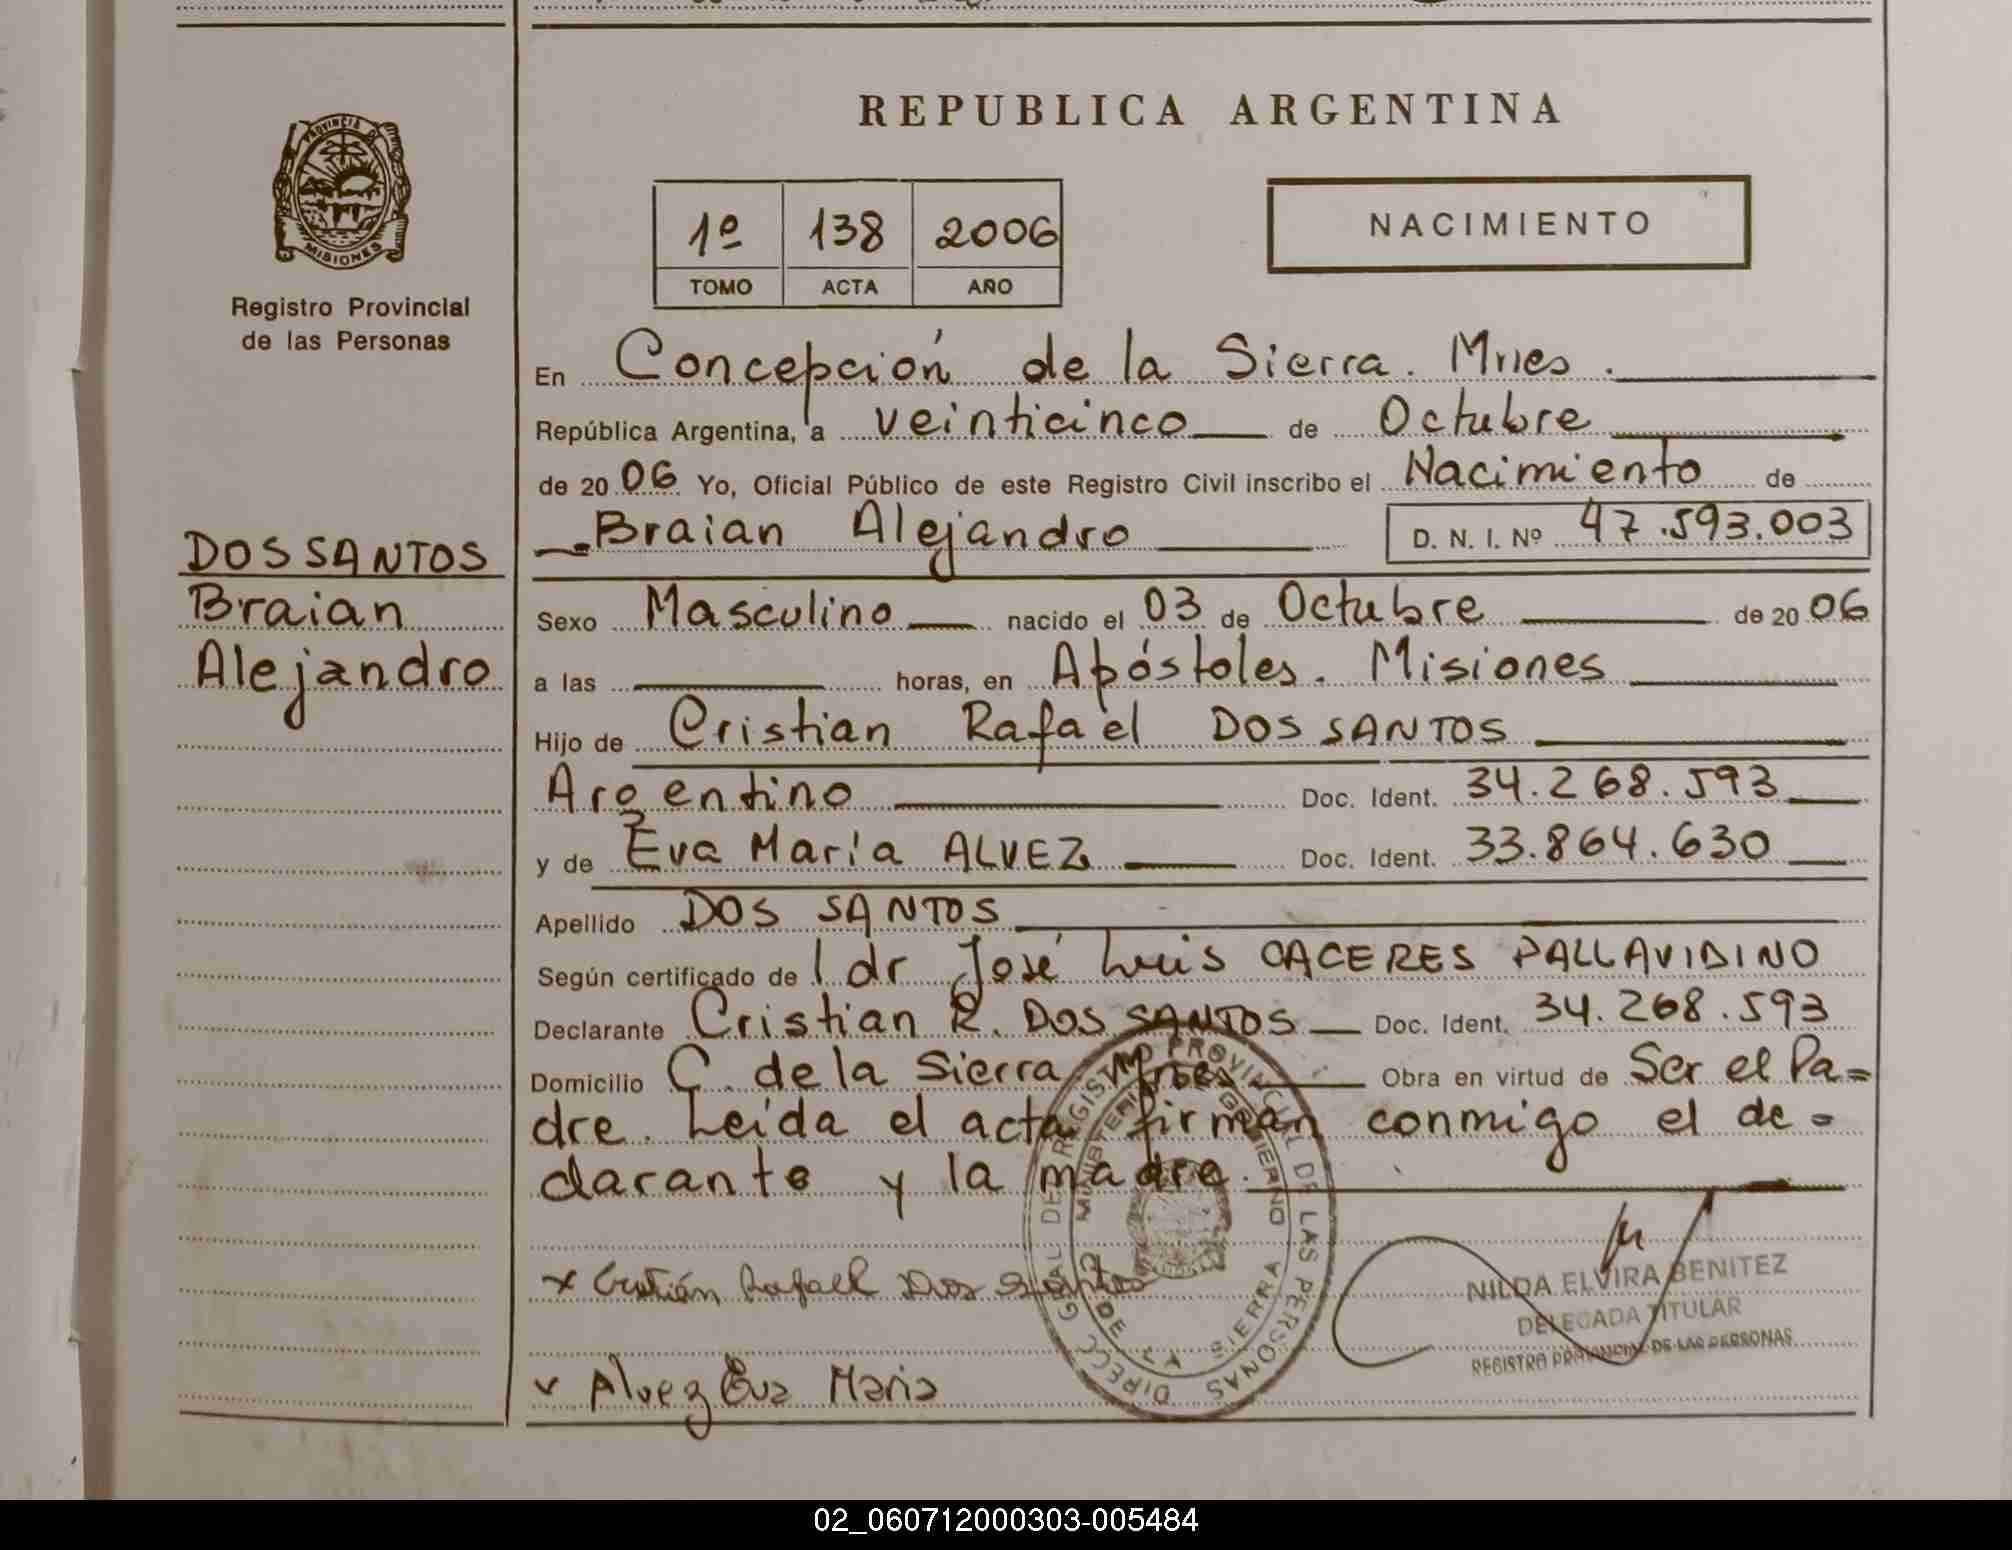 REPUBLICA ARGENTINA
PROVINCIA D
MISIONES
Registro Provincial
de las Personas
1º 138 2006
TOMO ACTA AÑO
NACIMIENTO
DOS SANTOS
Braian
Alejandro
En Concepción de la Sierra. Mnes.
República Argentina, a veinticinco de Octubre
de 2006 Yo, Oficial Público de este Registro Civil inscribo el Nacimiento de
Braian Alejandro D. N. I. Nº 47.593.003
Sexo Masculino nacido el 03 de Octubre de 2006
a las horas, en Apóstoles. Misiones
Hijo de Cristian Rafael DOS SANTOS
Argentino Doc. Ident. 34.268.593
y de Eva María ALVEZ Doc. Ident. 33.864.630
Apellido DOS SANTOS
Según certificado de l dr José Luis CACERES PALLAVIDINO
Declarante Cristian R. DOS SANTOS Doc. Ident. 34.268.593
Domicilio C. de la Sierra Mnes Obra en virtud de Ser el Pa=
dre. Leída el acta firman conmigo el de=
clarante y la madre.
x Cristián Rafael Dos Santos
Alvez Eva Maria
DIRECC. GRAL DE REGISTRO PROVINCIAL DE LAS PERSONAS
MINISTERIO GOBIERNO
DE LA SIERRA
NILDA ELVIRA BENITEZ
DELEGADA TITULAR
REGISTRO PROVINCIAL DE LAS PERSONAS
02_060712000303-005484